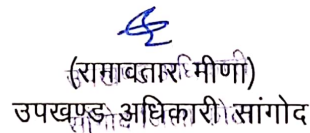 (रामावतार मीणा)
उपखण्ड अधिकारी सांगोद